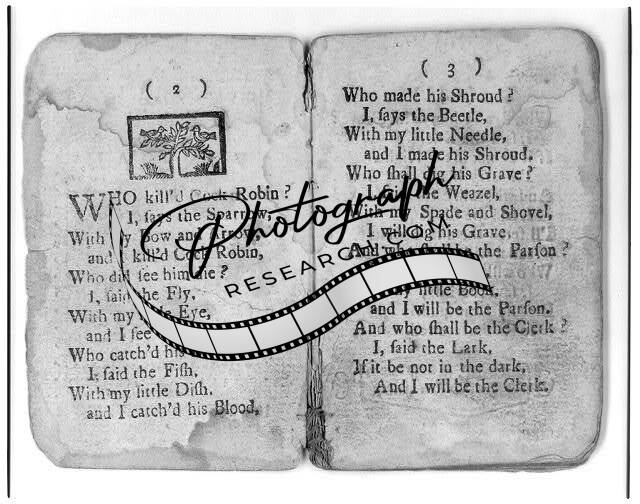 ( 2 )
WHO kill'd Cock Robin ?
I, ſays the Sparrow,
With my Bow and Arrow,
and I kill'd Cock Robin,
Who did ſee him die ?
I, ſaid the Fly,
With my Eye,
and I ſee
Who catch'd his
I, ſaid the Fiſh,
With my little Diſh,
and I catch'd his Blood,
( 3 )
Who made his Shroud ?
I, ſays the Beetle,
With my little Needle,
and I made his Shroud.
Who ſhall dig his Grave ?
I ſaid the Weazel,
With my Spade and Shovel,
I will dig his Grave,
And who ſhall be the Parſon ?
my little Book,
and I will be the Parſon.
And who ſhall be the Clerk ?
I, ſaid the Lark,
If it be not in the dark,
And I will be the Clerk.
Photograph
RESEARCH.COM